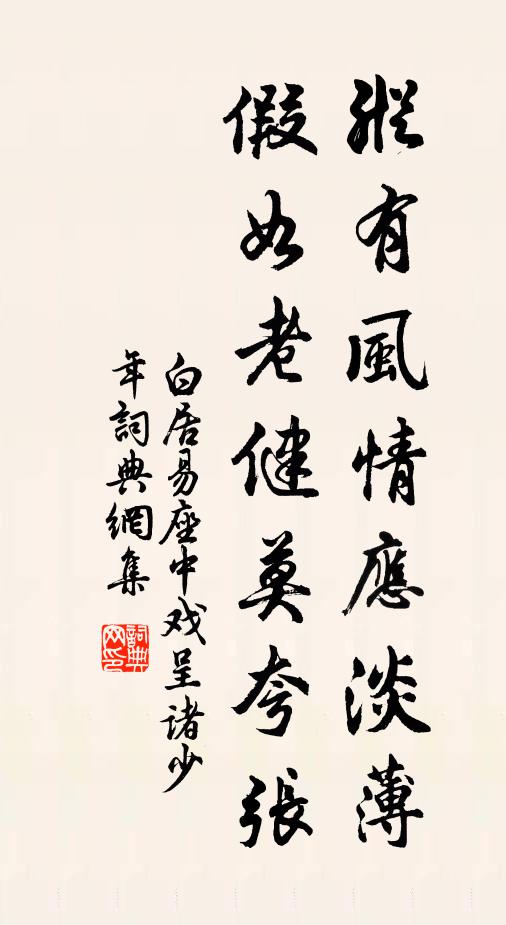 縱有風情應淡薄
假如老健莫夸張
白居易座中戏呈諸少
年詞典網集
詞典网印